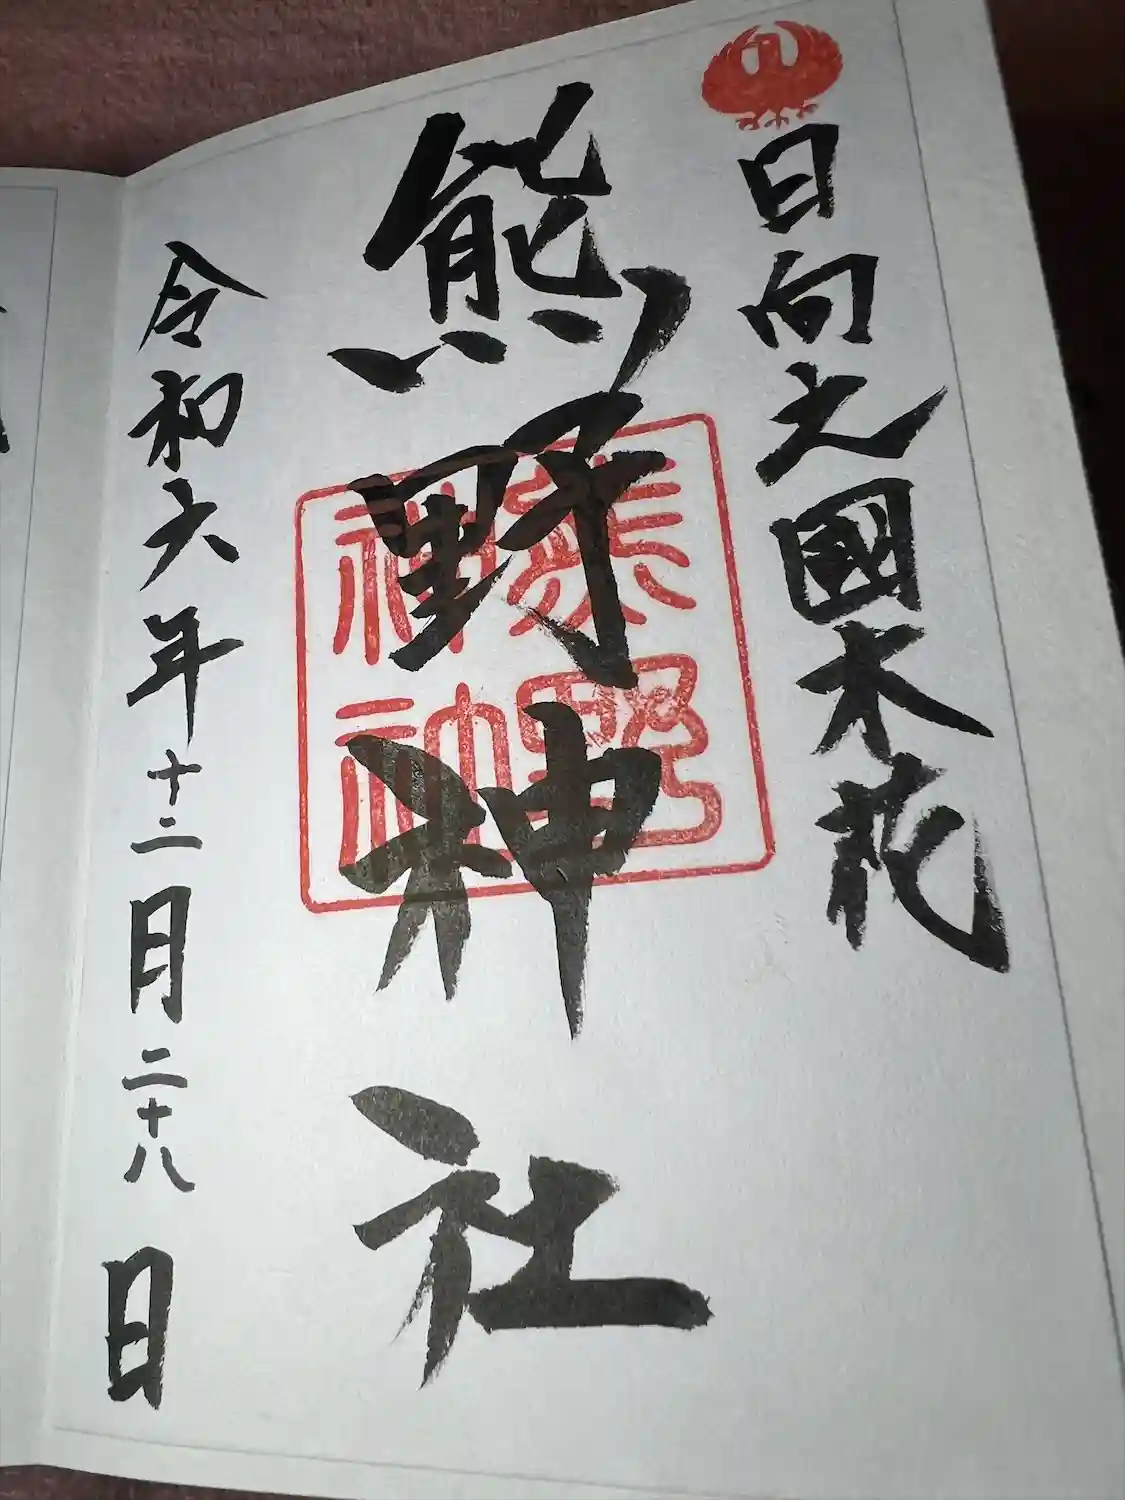 日向之國木花
熊野神社
熊野神社
令和六年十二月二十八日